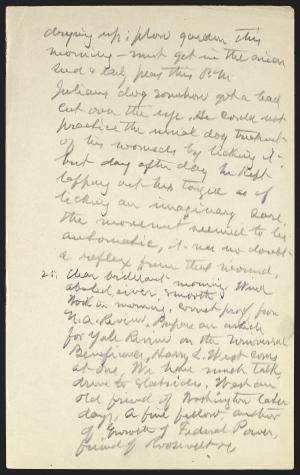 drying up; plow garden this
morning — must get in the onion
seed & early peas this P.M.
Julians dog somehow got a bad
cut over the eye. He could not
practice the usual dog treatment
of his wounds by licking it -
but day after day he kept
lapping out his tongue as if
licking an imaginary sore.
the movement seemed to be
automatic, it was no doubt
a reflex from that wound.
25; Clear brilliant morning. Wind
abated, river smooth.
Work in morning, correct proof for
N.A. Review. Prepare an article
for Yale Review on the Universal
Beneficence, Harry L. West comes
at one, We have much talk,
drive to Slabsides. West an
old friend of Washington later
days, A fine fellow, author
of Growth of Federal Power,
friend of Roosevelt